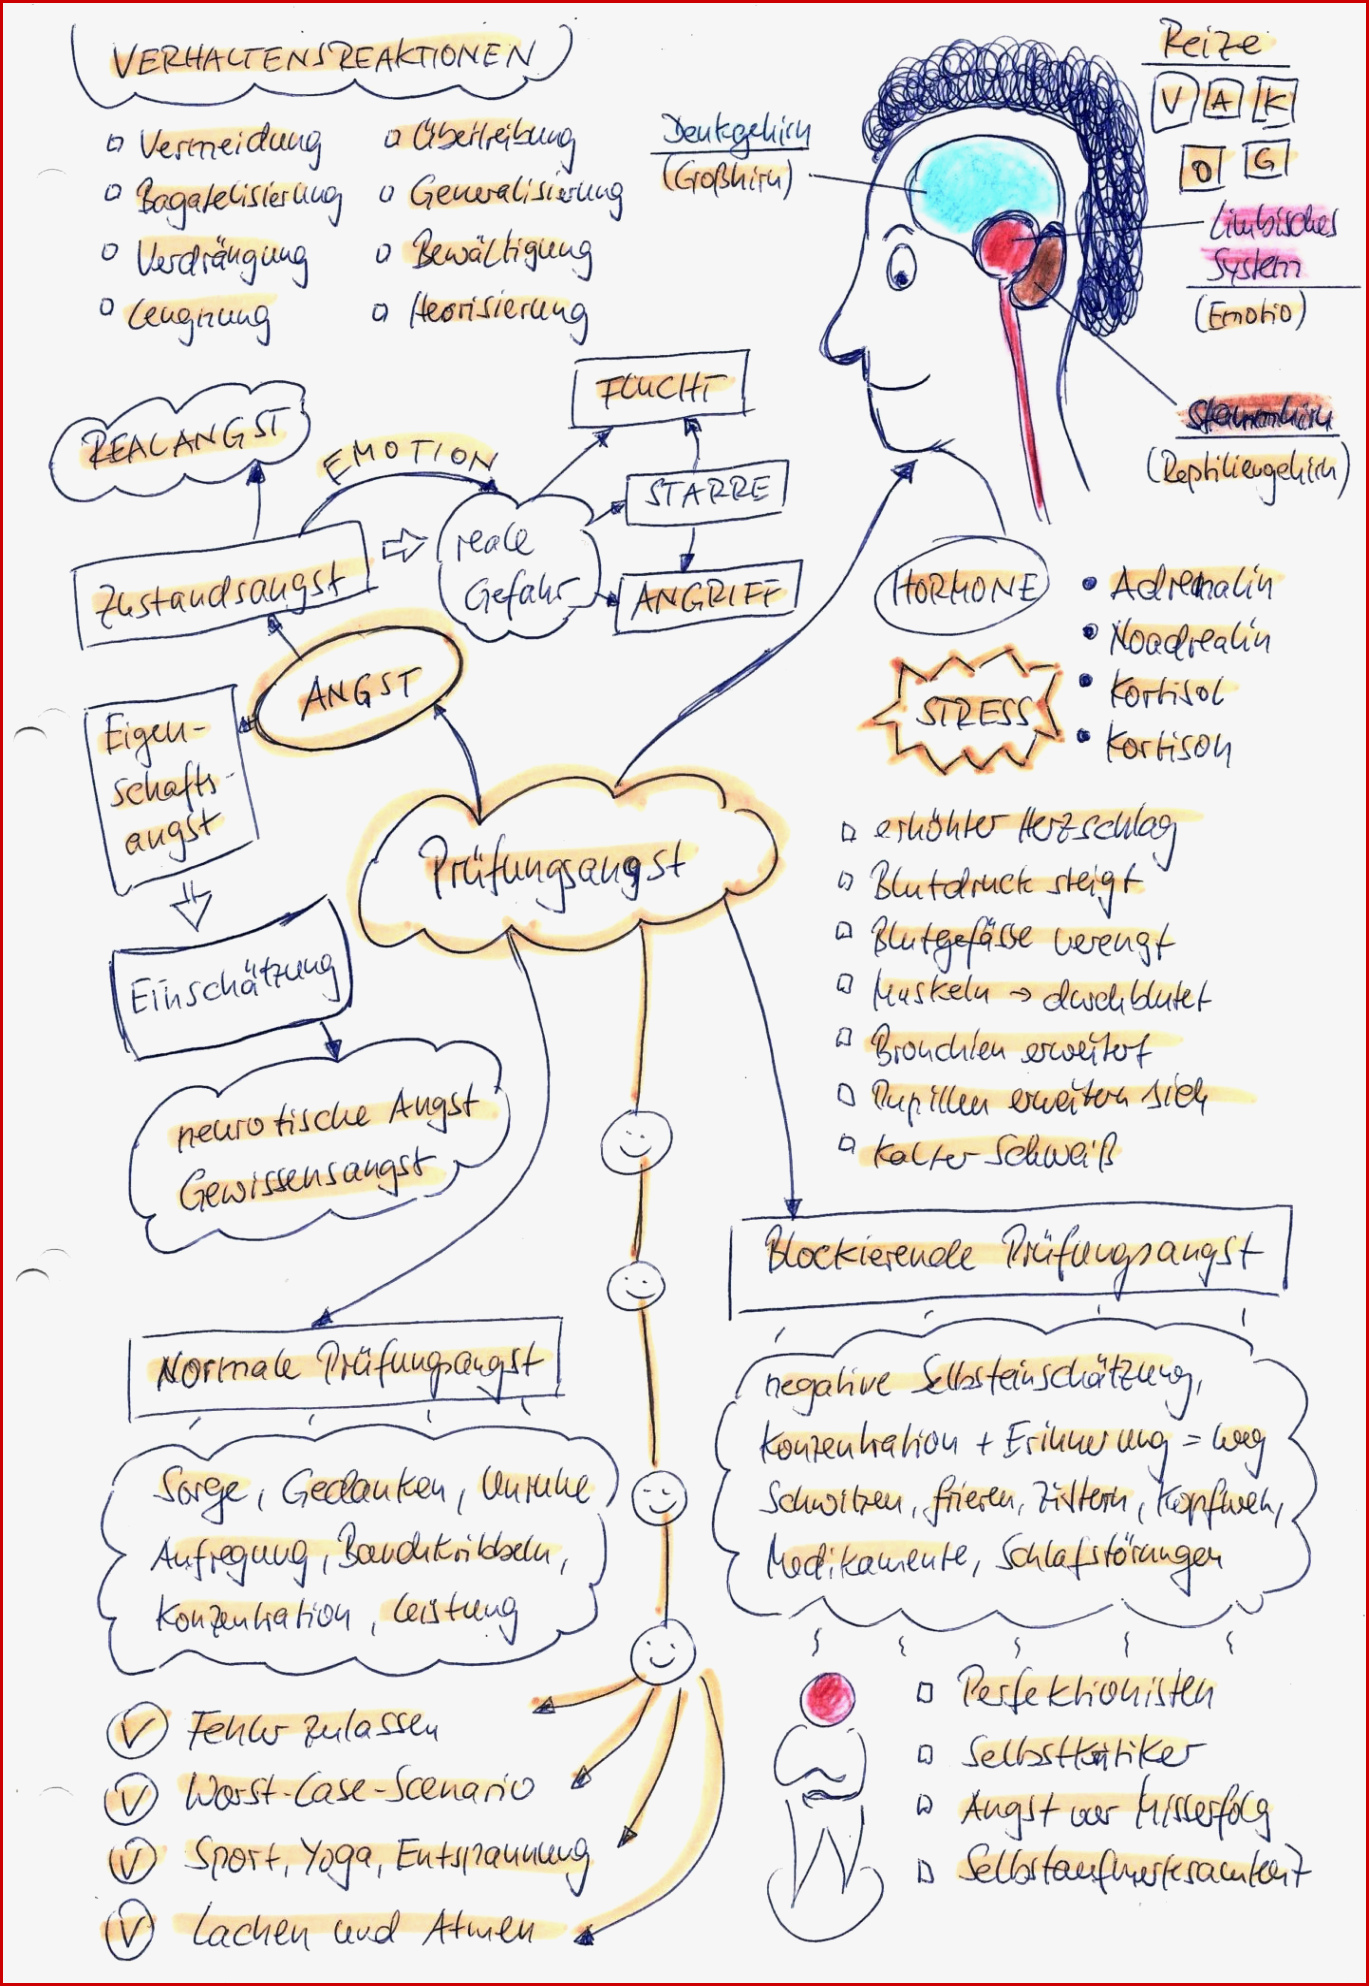 VERHALTENSREAKTIONEN
Vermeidung
Bagatelisierung
Verdrängung
Leugnung
Übertreibung
Generalisierung
Bewältigung
Heorisierung
Denkgehirn
(Großhirn)
Reize
V A K
O G
Limbisches
System
(Emotio)
Stammhirn
(Reptiliengehirn)
REALANGST
EMOTION
FLUCHT
STARRE
ANGRIFF
reale
Gefahr
Zustandsangst
ANGST
Eigen-
schafts-
angst
Einschätzung
neurotische Angst
Gewissensangst
HORMONE
Adrenalin
Noadrealin
Kortisol
Kortison
STRESS
Prüfungsangst
erhöhter Herzschlag
Blutdruck steigt
Blutgefässe verengt
Muskeln → durchblutet
Bronchien erweitert
Pupillen erweitern sich
Kalter Schweiß
Normale Prüfungsangst
Sorge, Gedanken, Unruhe
Aufregung, Bauchkribbeln,
Konzentration, Leistung
Blockierende Prüfungsangst
negative Selbsteinschätzung,
Konzentration + Erinnerung = weg
Schwitzen, frieren, Zittern, Kopfweh,
Medikamente, Schlafstörungen
Fehler zulassen
Worst-Case-Scenario
Sport, Yoga, Entspannung
Lachen und Atmen
Perfektionisten
Selbstkritiker
Angst vor Misserfolg
Selbstaufmerksamkeit